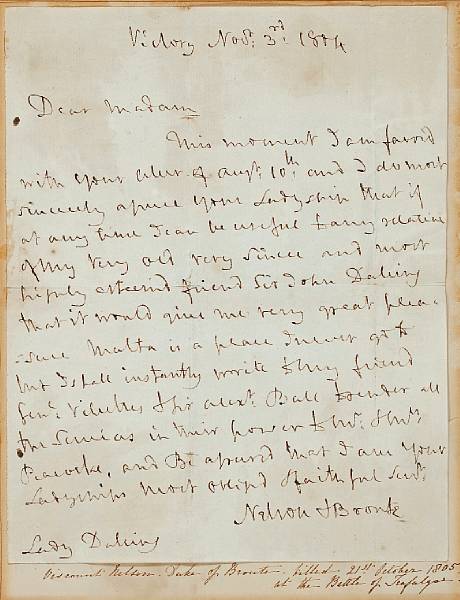 Victory Novr. 3rd. 1804
Dear Madam
This moment I am favord
with your letter of Augt. 10th and I do most
sincerely assure your Ladyship that if
at any time I can be useful to any relative
of my very old very sincere and most
highly esteemd friend Sir John Dalling
that it would give me very great plea
-sure Malta is a place I never go to
but I shall instantly write to my friend
Genl. Villettes & Sir Alexr. Ball to render all
the services in their power to Mr. & Mrs.
Peacocke, and Be assured that I am your
Ladyships most obligd & faithful Servt.
Nelson & Bronte
Lady Dalling
Viscount Nelson. Duke of Bronte. killed 21st October 1805
at the Battle of Trafalgar